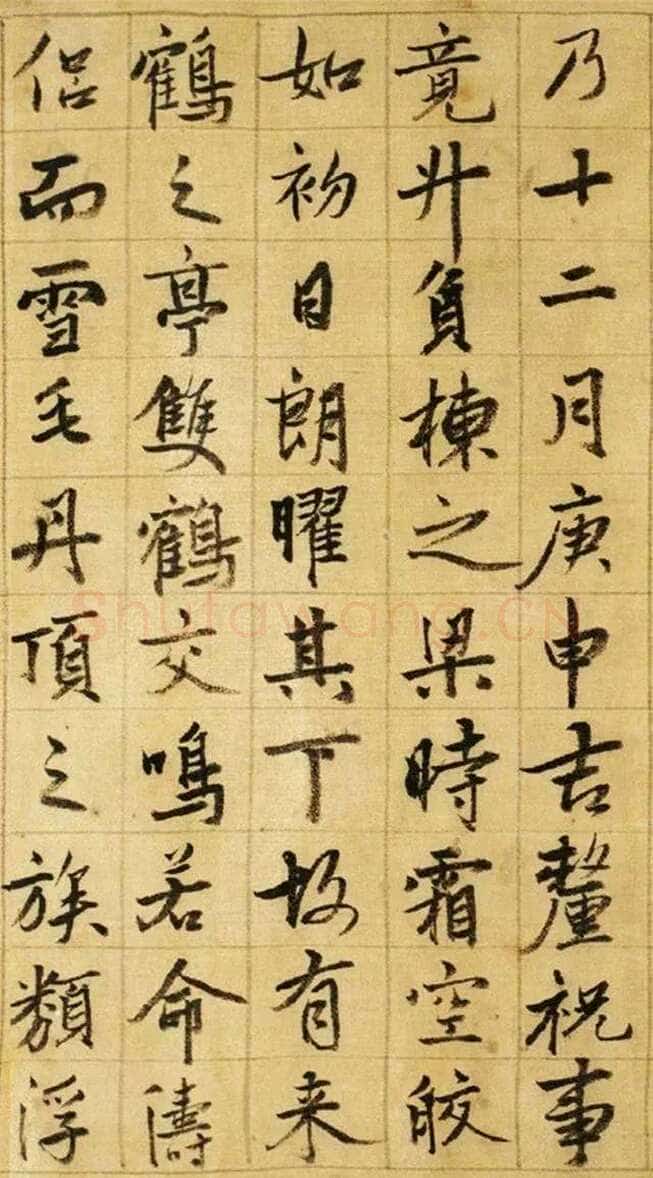 乃十二月庚申吉釐祝事
竟升負棟之梁時霜空皎
如初日朗曜其下故有来
鶴之亭雙鶴交鳴若命儔
侶而雪毛丹頂之族類浮
shufawang.CN